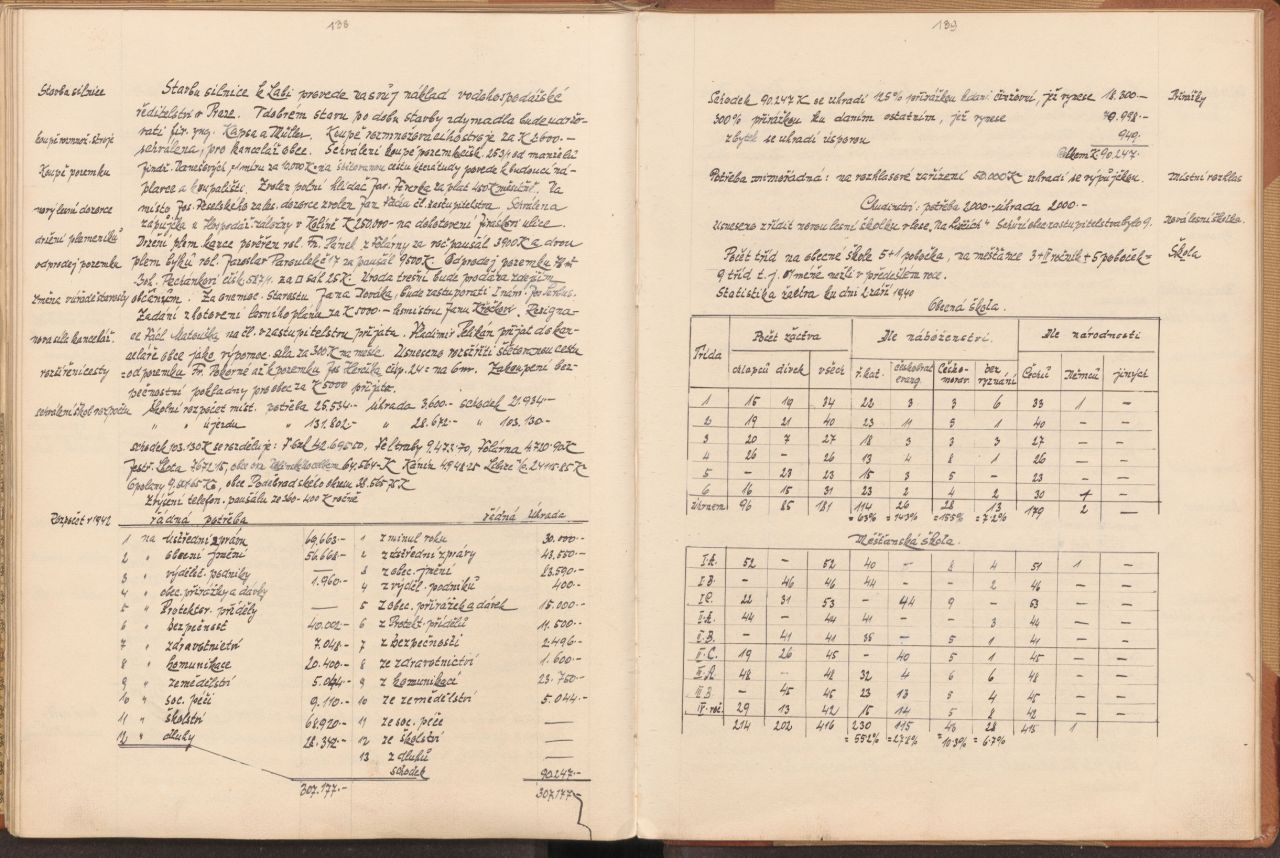 138
Stavba silnice
Stavbu silnice k Labi provede na svůj náklad vodohospodářské
ředitelství v Praze. V dobrém stavu po dobu stavby zdymadla bude udržo-
vati fir. yng. Kapsa a Müller. Koupě rozmnožovacího stroje za K
koupě rozmnož. stroje
schválena, pro kancelář obce. Schválení koupě pozemk. čísk. 253/4 od manželů
Koupě pozemku
Jindř. výměru za 10.000 K na cestu která tudy povede k budoucí
plavce a koupališti. Zvolen polní hlídač Jos. za plat 450 K měsíčně. Na
nový lesní dozorce
místo Jos. Veselského za les. dozorce zvolen Jan čl. zastupitelstva. Schválena
zápůjka u Hospodář. záložny v Kolíně K 250.000 na dohotovení Jiráskovi ulice.
držení plemeníků
Držení plem. kance pověřen rol. Fr. Hánek z Volárny za roč. paušál 3900 K a dvou
plem. býků rol. Jaroslav 17 za paušál 9500 K. Odprodej pozemku
odprodej pozemku
Bol. čísk. 527/1. za □ sáh 25 K. Úroda třešní bude prodána zdejším
změna v úřadě starosty
občanům. Za onemoc. starostu Jana Dvořáka, bude zastupovati I nám. Jos.
Zadání zhotovení lesního plánu za K 5000- lesmistru Janu Resigna-
nová síla kancelář.
ce Václ. Matouška na čl. v zastupitelstvu přijata. Vladimír Pelikán přijat do kan-
celáře obce jako výpomoc. síla za 300 K na měsíc. Usneseno rozšířiti štětovanou cestu
rozšíření cesty
od pozemku Fr. Pokorné až k pozemku Jos. čp. 24 = na 6 mr. Zakoupení bez-
pečnostní pokladny pro obec za K 5000 přijato.
schválení škol. rozpočtu
Školní rozpočet míst. potřeba 25.534.- úhrada 3.600.- schodek 21.934.-
„ „ újezdu „ 131.802.- „ 28.672.- „ 103.130.-
schodek 103.130 K se rozděluje: Týnec 42.695.00, Veltruby 9.473.70, Volárna 4.720.90 K
Jestř. Lhota 7672.15, 64.564.- K Kánín 4948.25 Libice 24115.85 K
Opolany K, obce Poděbradského okresu 38.565.75 K
Zvýšení telefon. paušálu ze 360-400 K ročně
Rozpočet r 1942
řádná potřeba řádná úhrada
1 na ústřední správu 69.663.- 1 z minul. roku 30.000.-
2 „ obecní jmění 56.668.- 2 z ústřední správy 43.550.-
3 „ výděleč. podniky — 3 z obec. jmění 23.590.-
4 „ obec. přirážky a dávky 1.960.- 4 z výděl. podniků 400.-
5 „ Protektor. příděly — 5 z obec. přirážek a dávek 15.000.-
6 „ bezpečnost 40.002.- 6 z Protekt. přídělů 11.500.-
7 „ zdravotnictví 7.048.- 7 z bezpečnosti 2.496.-
8 „ komunikace 20.400.- 8 ze zdravotnictví 1.600.-
9 „ zemědělství 5.044.- 9 z komunikací 23.750.-
10 „ soc. péči 9.110.- 10 ze zemědělství 5.044.-
11 „ školství 68.920.- 11 ze soc. péče —
12 „ dluhy 28.342.- 12 ze školství —
13 z dluhů —
schodek 90.247.-
307.177.- 307.177.-
139
Schodek 90.247 K se uhradí 125% přirážkou k dani činžovní, jež vynese 18.300.-
Přirážky
300% přirážkou ku daním ostatním, jež vynese 70.998.-
zbytek se uhradí úsporou 949.-
Celkem K 90.247.-
Potřeba mimořádná: na rozhlasové zařízení 50.000 K uhradí se výpůjčkou.
místní rozhlas
Chudinství: potřeba 2000.- úhrada 2000.-
Usneseno zříditi novou lesní školku v lese „Na Ležích“ Schůzí obec. zastupitelstva bylo 9.
Nová lesní školka
Počet tříd na obecné škole 5+1 pobočka, na měšťance 3+IV ročník + 5 poboček =
Škola
9 tříd t. j. o 1 méně nežli v předešlém roce.
Statistika žactva ku dni 2 září 1940
Obecná škola.
Třída Počet žactva Dle náboženství. Dle národnosti
chlapců dívek všech ř. kat. českobrat. evang. Česko-morav. bez vyznání Čechů Němců jiných
1 15 19 34 22 3 3 6 33 1 —
2 19 21 40 23 11 5 1 40 — —
3 20 7 27 18 3 3 3 27 — —
4 26 — 26 13 4 8 1 26 — —
5 — 23 23 15 3 5 — 23 — —
6 16 15 31 23 2 4 2 30 1 —
Úhrnem 96 85 181 114 26 28 13 179 2 —
= 63% = 14.3% = 15.5% = 7.2%
Měšťanská škola.
I. A. 52 — 52 40 — 8 4 51 1 —
I B. — 46 46 44 — — 2 46 — —
I C. 22 31 53 — 44 9 — 53 — —
II. A. 44 — 44 41 — — 3 44 — —
II. B. — 41 41 35 — 5 1 41 — —
II. C. 19 26 45 — 40 5 1 45 — —
III. A. 48 — 48 32 4 6 6 48 — —
III B. — 45 45 23 13 5 4 45 — —
IV. roč. 29 13 42 15 14 5 8 42 — —
214 202 416 230 115 43 28 415 1
= 55.2% = 27.8% = 10.3% = 6.7%